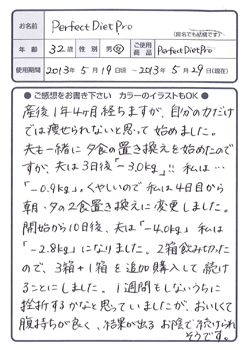 お名前 PerfectDietPro
(匿名でも結構です)
年齢 32歳 性別 男・女 ご使用商品 PerfectDietPro
使用期間 2013年5月19日頃 ～2013年5月29日(現在)
● ご感想をお書き下さい カラーのイラストもOK ●
産後1年4ヶ月経ちますが、自分の力だけ
では痩せられないと思って始めました。
夫も一緒に夕食の置き換えを始めたので
すが、夫は3日後「-3.0kg」!! 私は…
「-0.9kg」。くやしいので私は4日目から
朝・夕の2食置き換えに変更しました。
開始から10日後、夫は「-4.0kg」私は
「-2.8kg」になりました。2箱飲み切った
ので、3箱+1箱を追加購入して続け
ることにしました。1週間もしないうちに
挫折するかなと思っていましたが、おいしくて
腹持ちが良く、結果が出るお陰で続けられ
そうです。